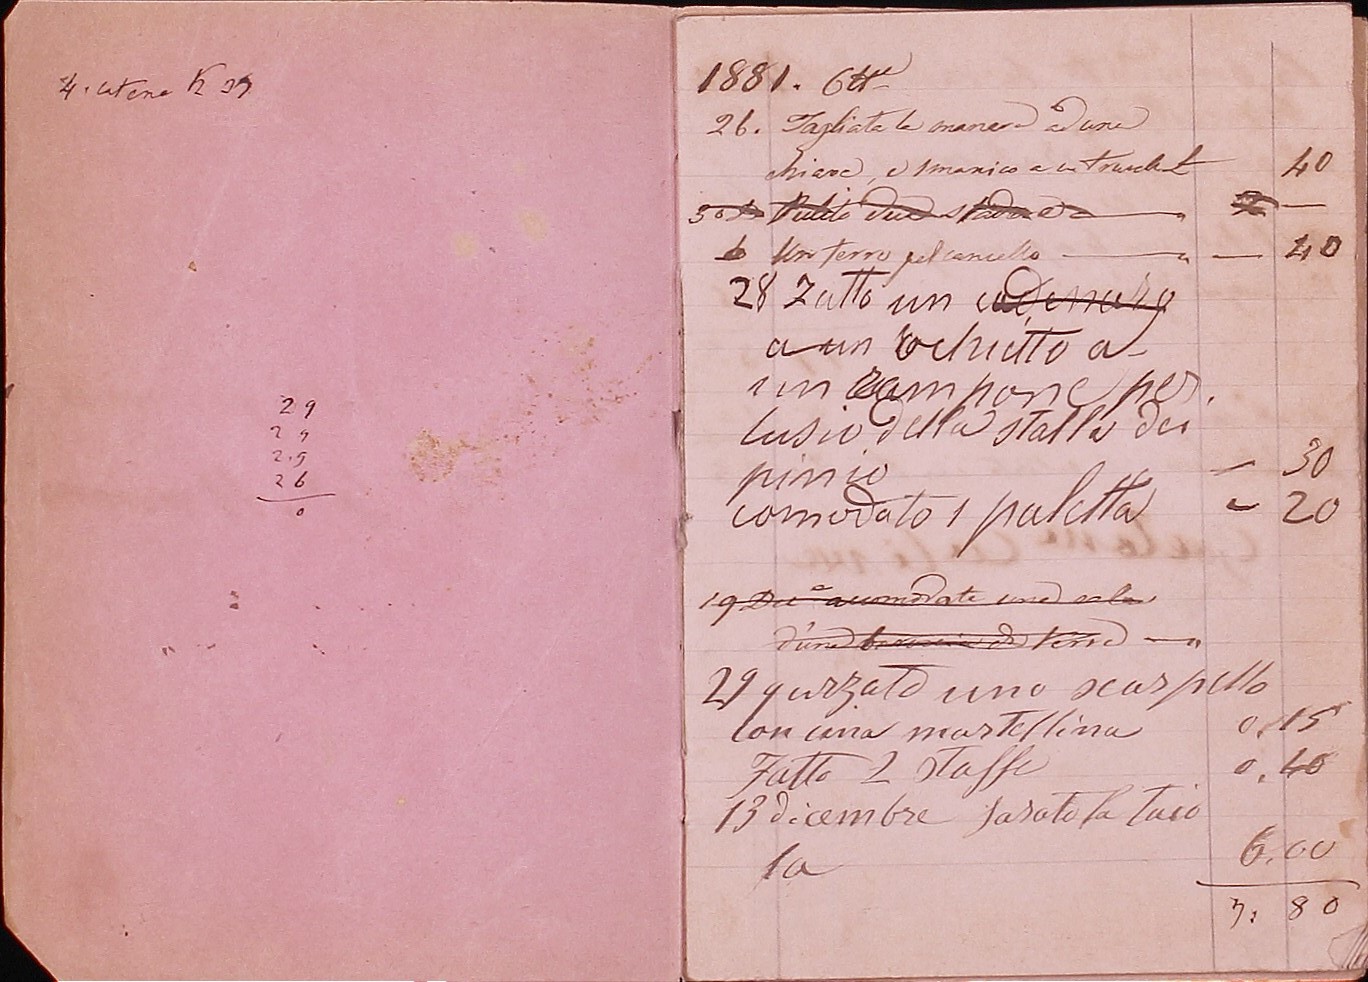 4. catene K 29
29
29
29
26
0
1881. 6tt
26. Tagliata la manera ad una
chiave, e smanico a un 40
Pulito due stadere
6 Un ferro pel cancello — 40
28 Fatto un cadenazo
a un ochietto a
un rampone per
lusio della stalla dei
pinio 30
comodato 1 paletta 20
19 Dic accomodata una
d'una di ferro
29 guzzato uno scarpello
con una martellina 0,15
Fatto 2 staffe 0,40
13 dicembre la taio
la 6.00
7,80